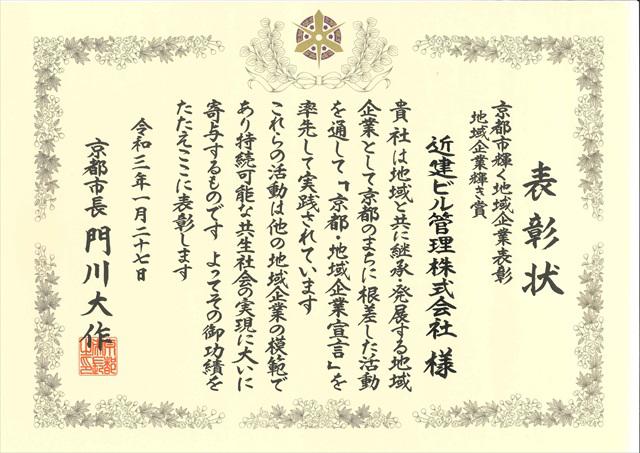 表彰状
京都市輝く地域企業表彰
地域企業輝き賞
近建ビル管理株式会社 様
貴社は地域と共に継承・発展する地域
企業として京都のまちに根差した活動
を通して「京都・地域企業宣言」を
率先して実践されています
これらの活動は他の地域企業の模範で
あり持続可能な共生社会の実現に大いに
寄与するものです よってその御功績を
たたえここに表彰します
令和三年一月二十七日
京都市長 門川大作